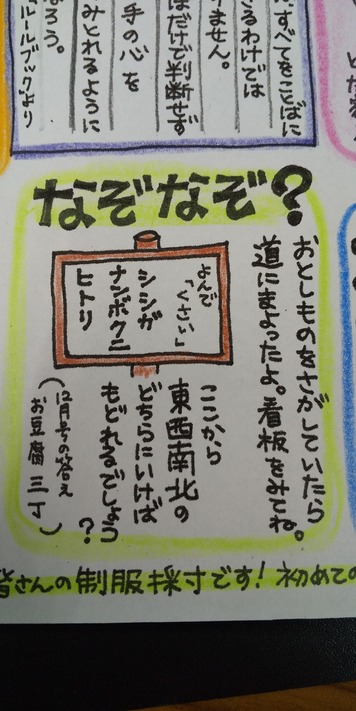 すべてをことばに
きるわけでは
りません。
ばだけで判断せず
手の心を
みとれるように
なろう。
ルルブックより
なぞなぞ?
おとしものをさがしていたら
道にまよったよ。看板をみてね。
よんで
「くさい」
シシガ
ナンボクニ
ヒトリ
ここから
東西南北の
どちらにいけば
もどれるでしょう?
(12月号の答え
お豆腐 三丁)
皆さんの制服採寸です!初めての